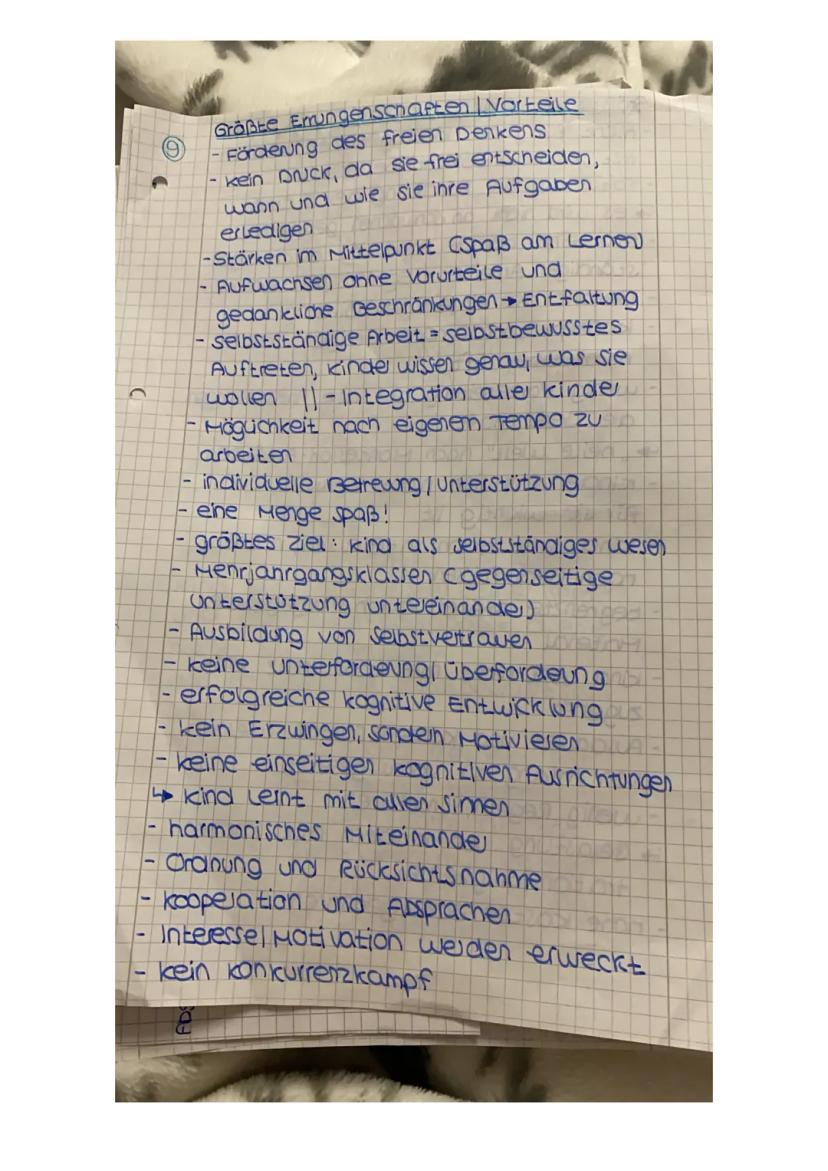 Größte Errungenschaften | Vorteile
⑨
- Förderung des freien Denkens
- kein Druck, da sie frei entscheiden,
wann und wie sie ihre Aufgaben
erledigen
- Stärken im Mittelpunkt (Spaß am Lernen)
- Aufwachsen ohne Vorurteile und
gedankliche Beschränkungen → Entfaltung
- selbstständige Arbeit = selbstbewusstes
Auftreten, Kinder wissen genau, was sie
wollen || - Integration aller Kinder
- Möglichkeit nach eigenem Tempo zu
arbeiten
- individuelle Betreuung / Unterstützung
- eine Menge Spaß!
- größtes Ziel: Kind als selbstständiges Wesen
- Mehrjahrgangsklassen (gegenseitige
Unterstützung untereinander)
- Ausbildung von Selbstvertrauen
- keine Unterforderung / Überforderung
- erfolgreiche kognitive Entwicklung
- kein Erzwingen, sondern Motivieren
- keine einseitigen kognitiven Ausrichtungen
↳ Kind lernt mit allen Sinnen
- harmonisches Miteinander
- Ordnung und Rücksichtsnahme
- Kooperation und Absprachen
- Interesse / Motivation werden erweckt
- kein Konkurrenzkampf